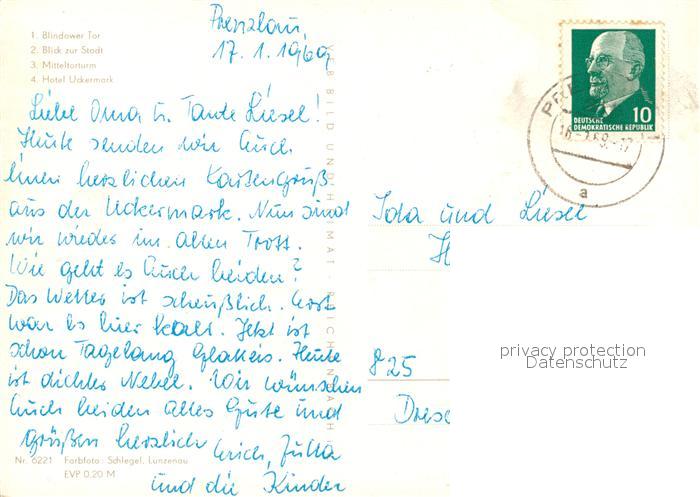 1. Blindower Tor
2. Blick zur Stadt
3. Mitteltorturm
4. Hotel Uckermark
Prenzlau,
17. 1. 1969
Liebe Oma u. Tante Liesel!
Heute senden wir Euch
einen herzlichen Kartengruß
aus der Uckermark. Nun sind
wir wieder im alten Trott.
Wie geht es Euch beiden?
Das Wetter ist scheußlich. Erst
war es hier kalt. Jetzt ist
schon Tagelang Glatteis. Heute
ist dichter Nebel. Wir wünschen
Euch beiden alles Gute und
grüßen herzlich
Erich, Jutta
und die Kinder
Nr. 6221 Farbfoto: Schlegel, Lunzenau
EVP 0,20 M
VEB BILD UND HEIMAT · REICHENBACH
10
DEUTSCHE
DEMOKRATISCHE REPUBLIK
a
Ida und Liesel
H
825
Dres
privacy protection
Datenschutz